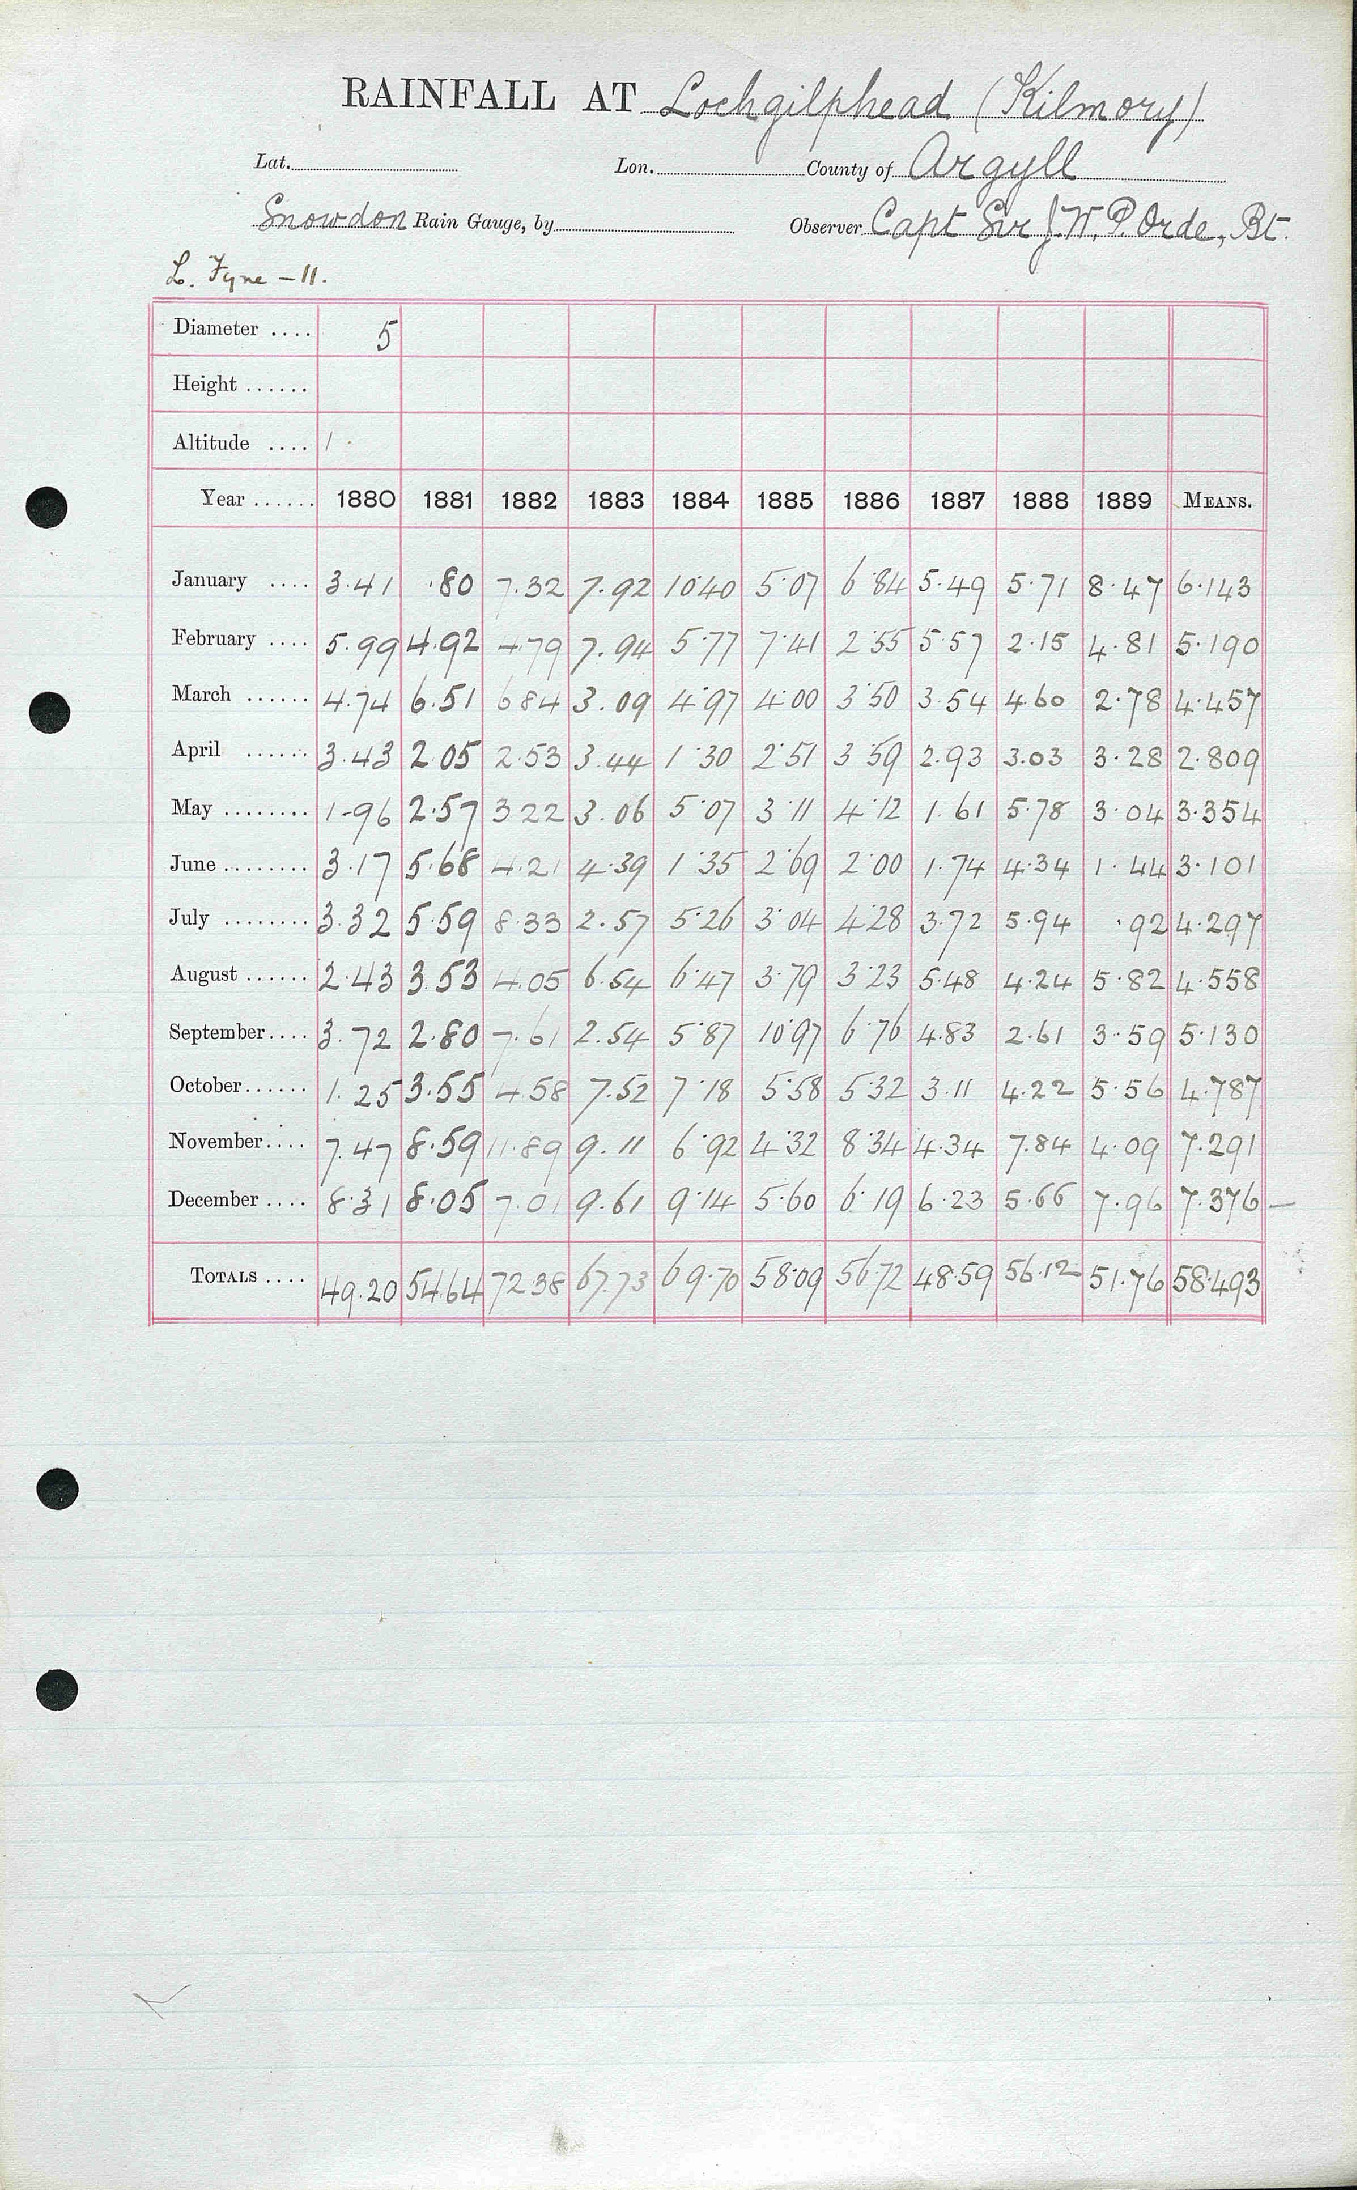 RAINFALL AT Lochgilphead (Kilmory)
Lat. Lon. County of Argyll
Snowdon Rain Gauge, by Observer Capt Sir J. W. P. Orde, Bt.
L. Fyne - 11.
Diameter .... 5
Height ......
Altitude ....
Year ...... 1880 1881 1882 1883 1884 1885 1886 1887 1888 1889 MEANS.
January .... 3.41 .80 7.32 7.92 10.40 5.07 6.84 5.49 5.71 8.47 6.143
February .... 5.99 4.92 4.79 7.94 5.77 7.41 2.55 5.57 2.15 4.81 5.190
March ...... 4.74 6.51 6.84 3.09 4.97 4.00 3.50 3.54 4.60 2.78 4.457
April ...... 3.43 2.05 2.53 3.44 1.30 2.51 3.59 2.93 3.03 3.28 2.809
May ........ 1.96 2.57 3.22 3.06 5.07 3.11 4.12 1.61 5.78 3.04 3.354
June ........ 3.17 5.68 4.21 4.39 1.35 2.69 2.00 1.74 4.34 1.44 3.101
July ........ 3.32 5.59 8.33 2.57 5.26 3.04 4.28 3.72 5.94 .92 4.297
August ...... 2.43 3.53 4.05 6.54 6.47 3.79 3.23 5.48 4.24 5.82 4.558
September.... 3.72 2.80 7.61 2.54 5.87 10.97 6.76 4.83 2.61 3.59 5.130
October...... 1.25 3.55 4.58 7.52 7.18 5.58 5.32 3.11 4.22 5.56 4.787
November.... 7.47 8.59 11.89 9.11 6.92 4.32 8.34 4.34 7.84 4.09 7.291
December .... 8.31 8.05 7.01 9.61 9.14 5.60 6.19 6.23 5.66 7.96 7.376
TOTALS .... 49.20 54.64 72.38 67.73 69.70 58.09 56.72 48.59 56.12 51.76 58.493